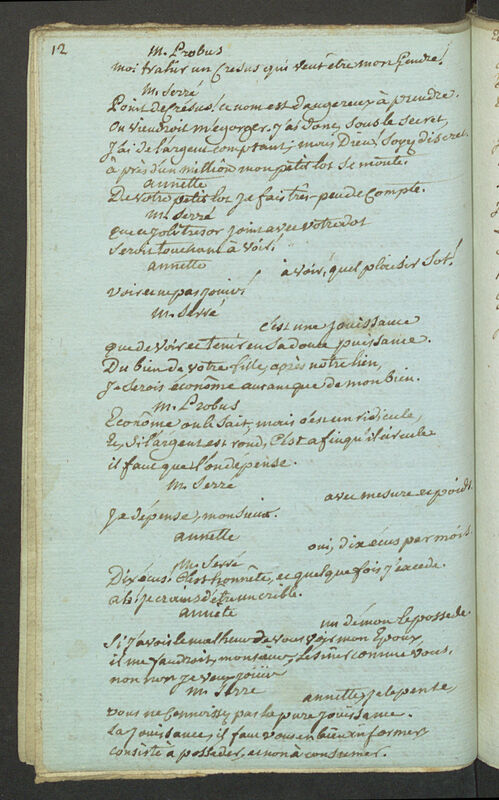 12
M. Probus
moi trahir un Cresus qui veut être mon Gendre!
M. Serré
Point de Crésus! ce nom est dangereux à prendre.
On viendroit m'égorger. J'ai donc, sous le secret,
J'ai de l'argent comptant; mais Dieu! soyez discret.
à près d'un million mon petit lot se monte.
annette
De votre petit lot je fais très peu de Compte.
M. Serré
que ce joli tresor joint avec votre dot
seroit touchant à voir!
annette
à voir, quel plaisir sot!
voir et ne pas jouir!
M. Serré
c'est une jouissance
que de voir et tenir en sa douce puissance.
Du bien de votre fille, après nôtre lien,
Je serois économe autant que de mon bien.
M. Probus
Econôme on le sait, mais c'est un ridicule,
Et, si l'argent est rond, C'est afin qu'il circule
il faut que l'on dépense.
M. Serré
avec mesure et poids.
Je dépense, monsieur.
annette
oui, dix écus par mois.
M. Serré
Dix écus! C'est honnête, et quelque fois j'excede.
ah! je crains d'être un crible.
annete
un démon le possede
Si j'avois le malheur de vous voir mon Epoux,
il me faudroit, monsieur, lésiner comme vous,
non non je veux jouir
M. Serré
annette, je le pense,
vous ne Connoissez pas la pure jouissance.
La Jouissance, il faut vous en bien informer,
consiste à posseder, et non à consumer.